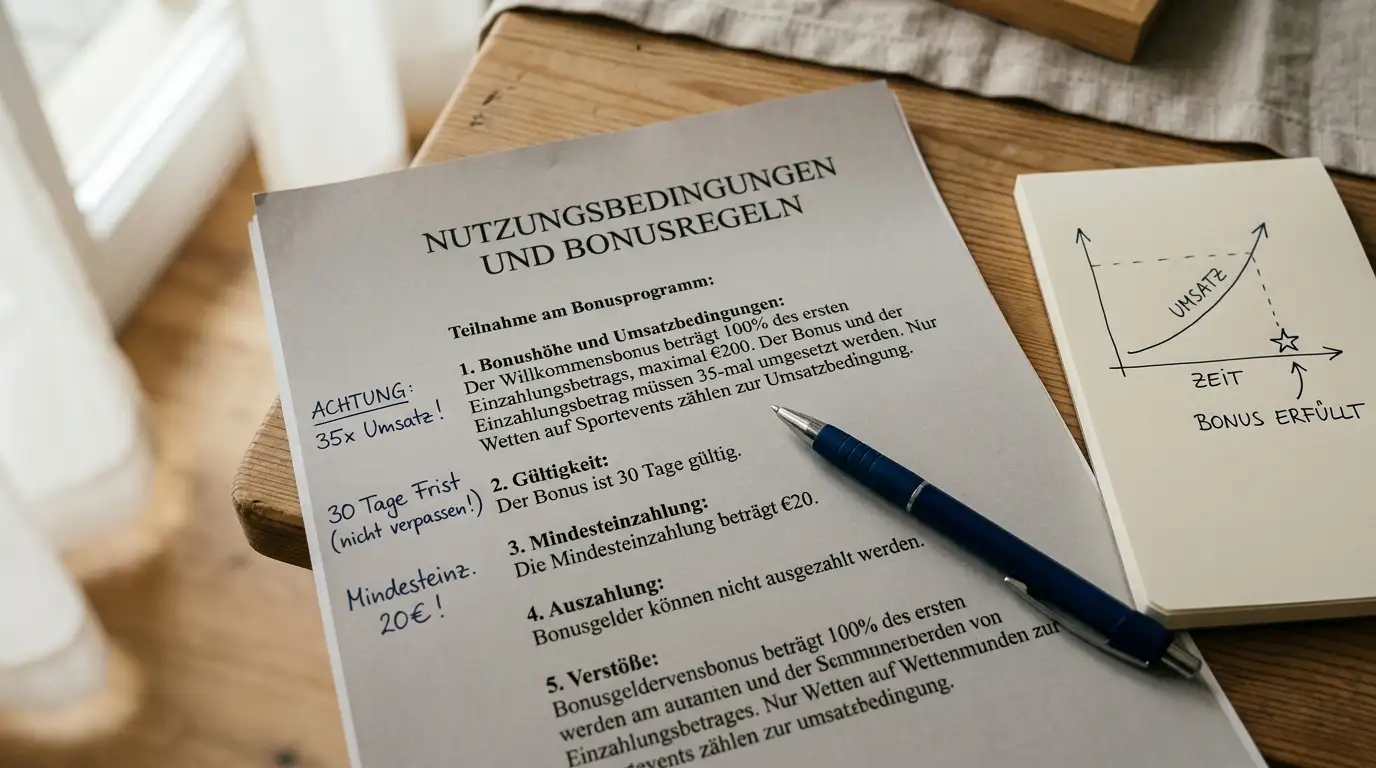 NUTZUNGSBEDINGUNGEN
UND BONUSREGELN
Teilnahme am Bonusprogramm:
1. Bonushöhe und Umsatzbedingungen:
Der Willkommensbonus beträgt 100% des ersten
Einzahlungsbetrags, maximal €200. Der Bonus und der
Einzahlungsbetrag müssen 35-mal umgesetzt werden. Nur
Wetten auf Sportevents zählen zur Umsatzbedingung.
2. Gültigkeit:
Der Bonus ist 30 Tage gültig.
3. Mindesteinzahlung:
Die Mindesteinzahlung beträgt €20.
4. Auszahlung:
Bonusgelder können nicht ausgezahlt werden.
5. Verstöße:
Bonusgeldervensbonus beträgt 100% des ersten
werden am auranten und der von
Einzahlungsbetrages. Nur Wetten auf Wettenmunden zur
zählen zur umsatzbedingung.
ACHTUNG:
35x Umsatz!
30 Tage Frist
(nicht verpassen!)
Mindesteinz.
20€!
UMSATZ
ZEIT
BONUS ERFÜLLT